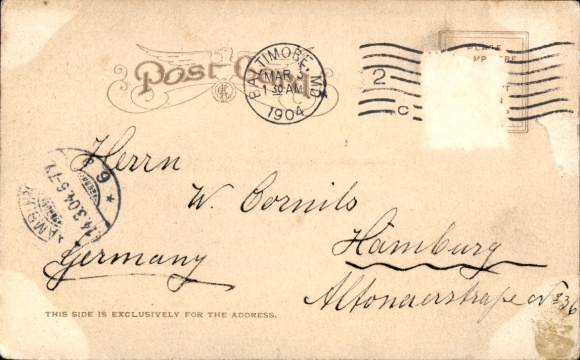 Post Card
BALTIMORE, MD.
MAR 3
1 30 AM
1904
2
C
PLACE
HERE
Herrn
W. Cornils
Hamburg
Germany
Altonaerstraße No 36
14.3.04. 6-7 V
6
THIS SIDE IS EXCLUSIVELY FOR THE ADDRESS.